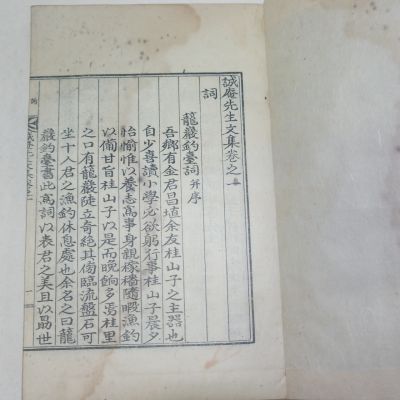 誠庵先生文集卷之一
詞
籠巖釣臺詞 并序
吾鄉有金君昌埴余友桂山子之主器也
自少喜讀小學必欲躬行事桂山子晨夕
怡愉惟以養志高事身親稼穡隨暇漁釣
以備甘旨桂山子以是而晚餉多焉桂里
之口有籠巖陡立奇絕其傍臨流盤石可
坐十人君之漁釣休息處也余名之曰籠
巖釣臺書此寫詞以表君之美且以勗世